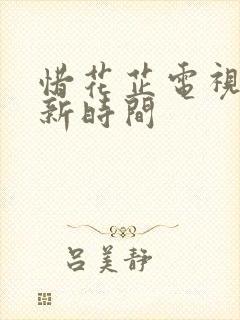 惜花芷電視
新時間
呂美靜